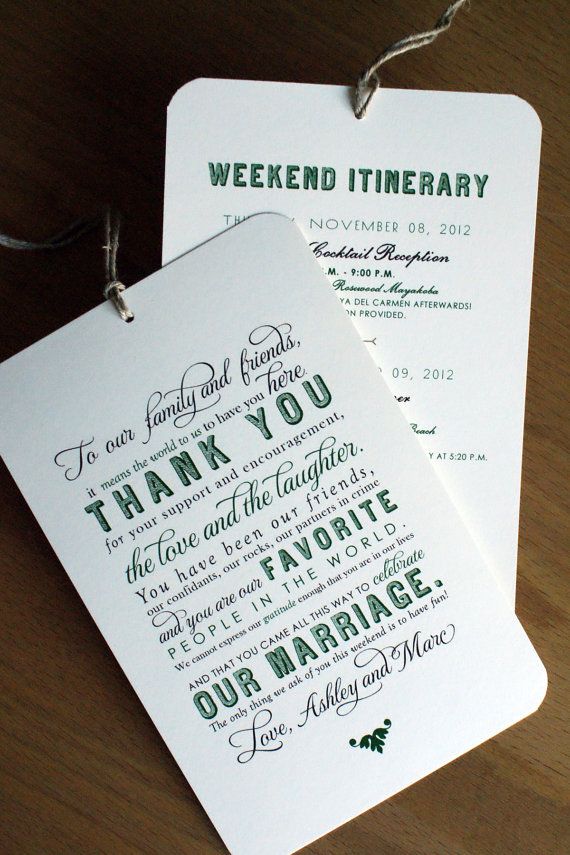 WEEKEND ITINERARY
NOVEMBER 08, 2012
Cocktail Reception
P.M. - 9:00 P.M.
Rosewood Mayakoba
YA DEL CARMEN AFTERWARDS!
ION PROVIDED.
Y
09, 2012
Beach
AT 5:20 P.M.
To our family and friends,
it means the world to us to have you here.
THANK YOU
for your support and encouragement,
the love and the laughter.
You have been our friends,
our confidants, our rocks, our partners in crime
and you are our FAVORITE
PEOPLE IN THE WORLD.
We cannot express our gratitude enough that you are in our lives
AND THAT YOU CAME ALL THIS WAY TO celebrate
OUR MARRIAGE.
The only thing we ask of you this weekend is to have fun!
Love, Ashley and Marc